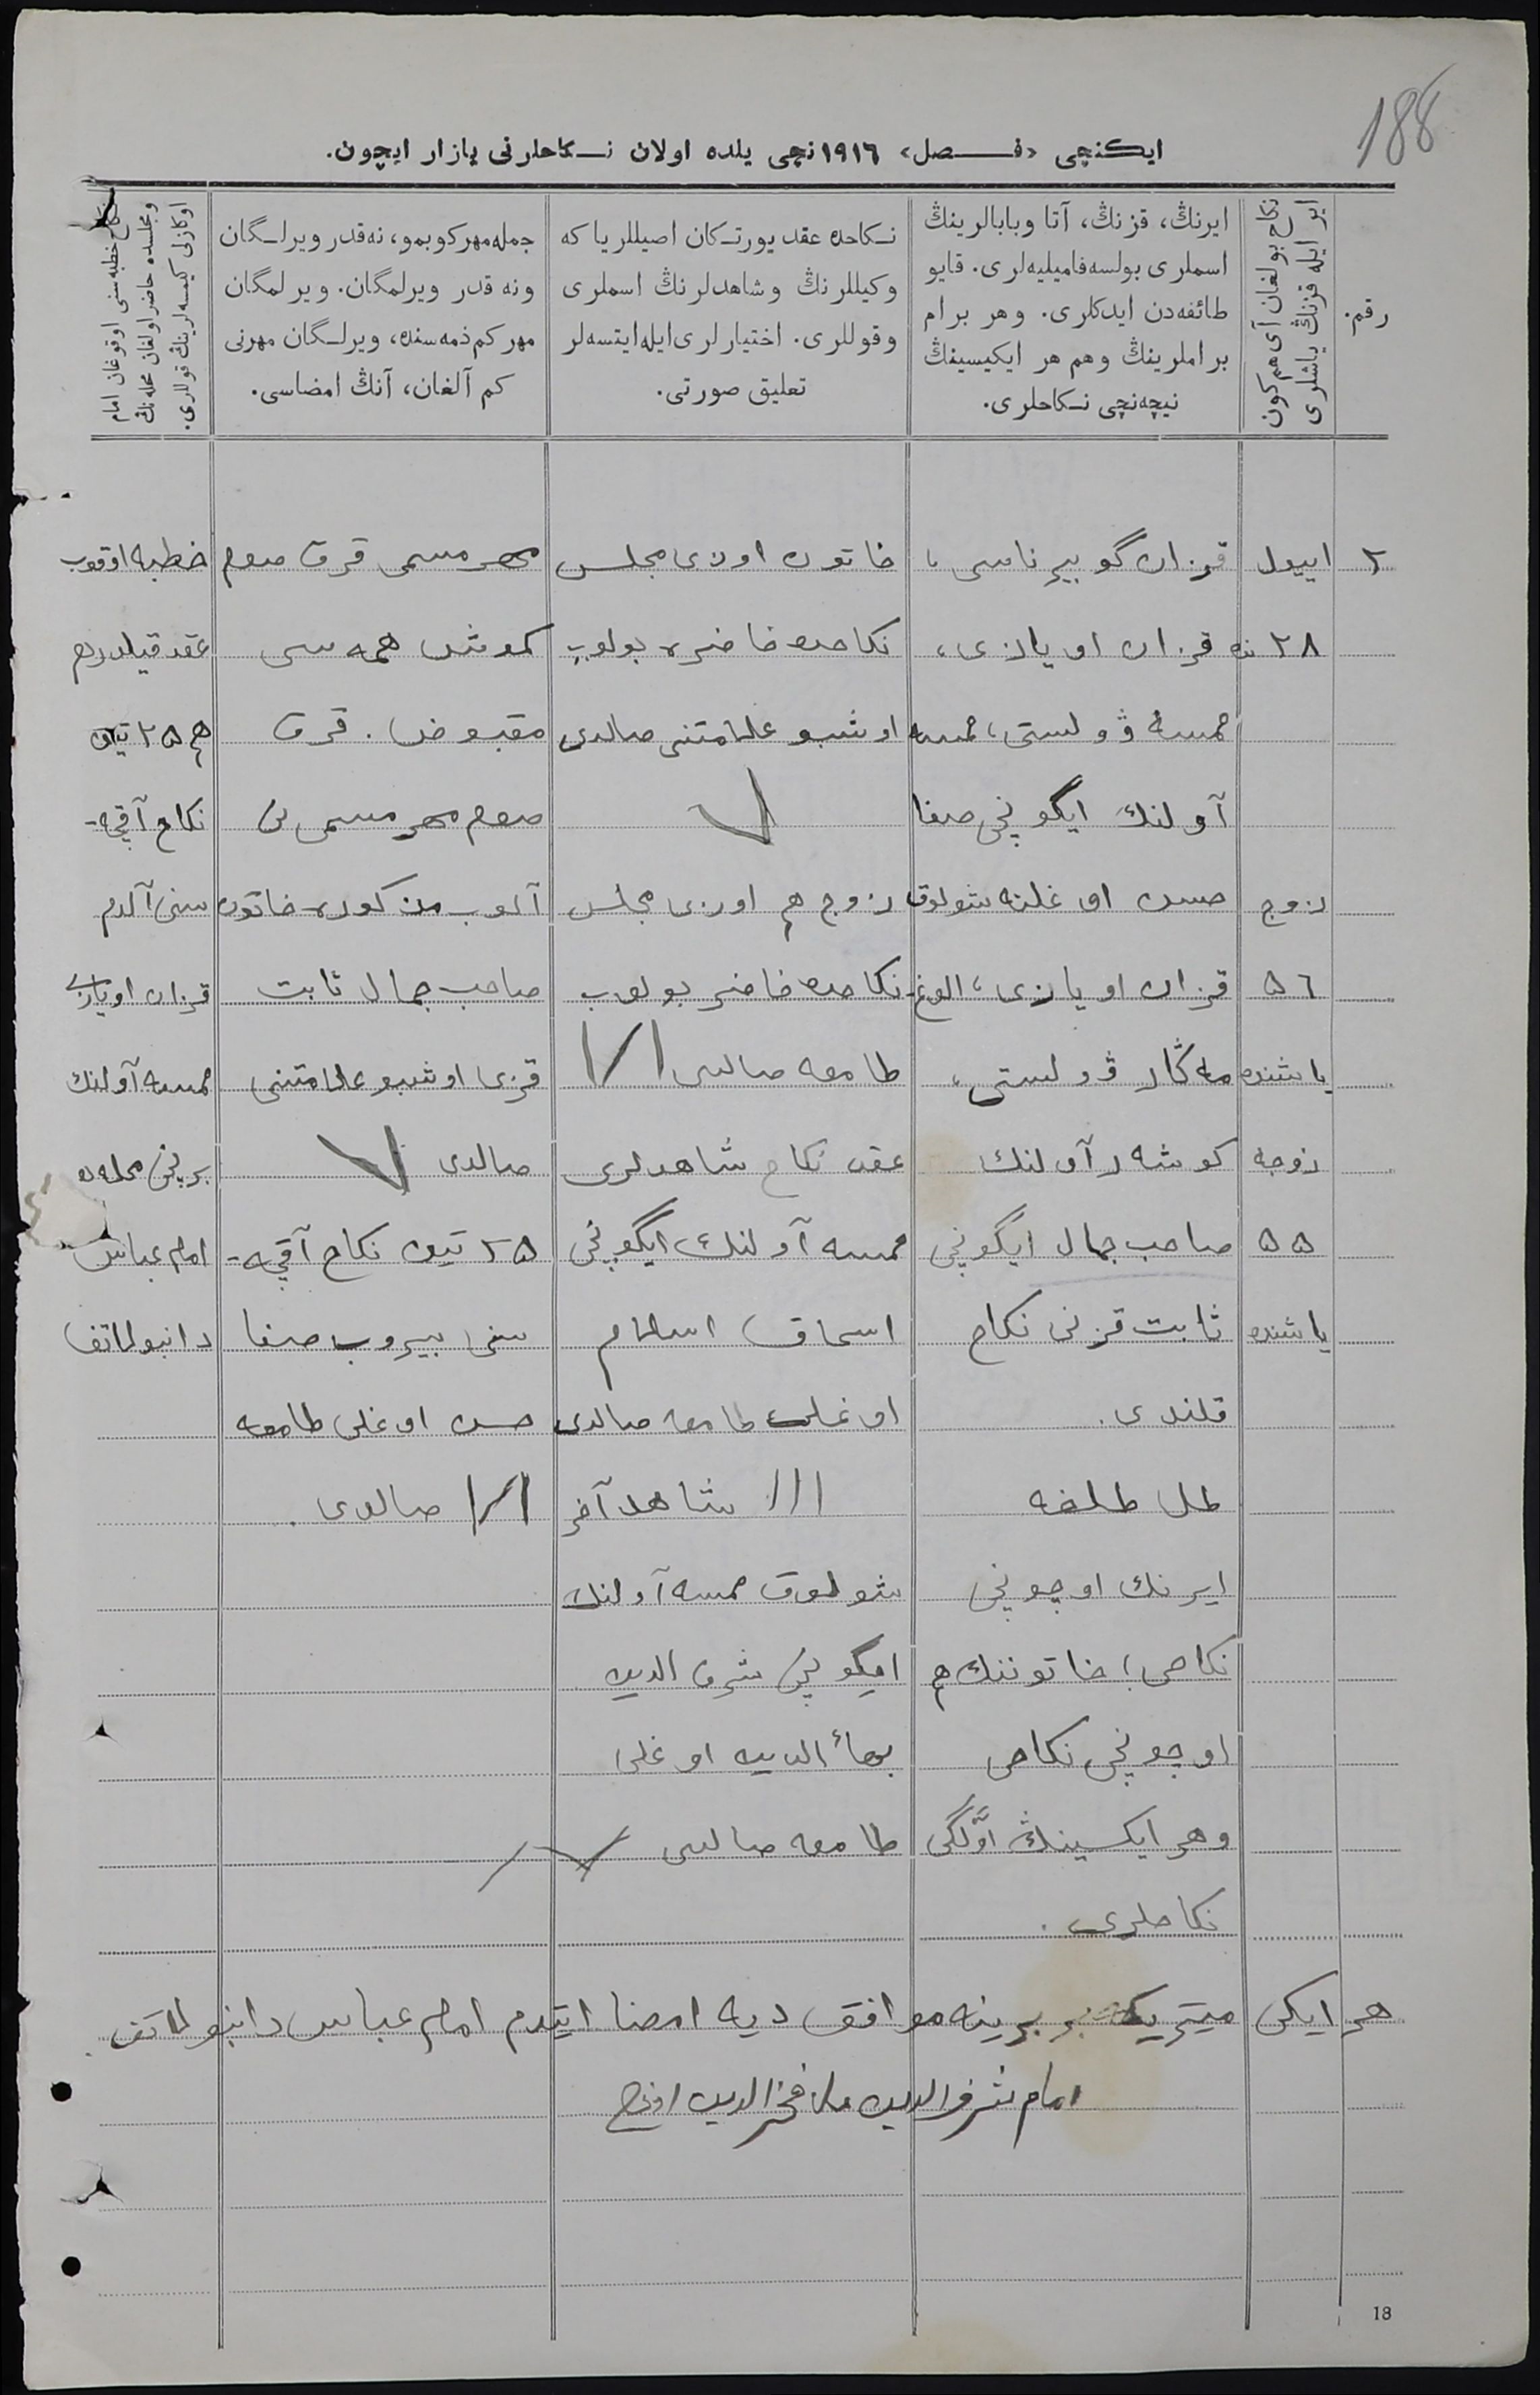 188
ایكنچی «فـــصل» ١٩١٦نچی یلده اولان نــكاحلرنی یازار ایچون.
رقم.
نكاح بولغان آی هم كون
ایر ایله قزنڭ یاشلری
ایرنڭ، قزنڭ، آتا وبابالرینڭ
اسملری بولسه فامیلیه‌لری. قایو
طائفه‌دن ایدكلری. وهر برام
براملرینڭ وهم هر ایكیسینڭ
نیچه‌نچی نــكاحلری.
نــكاحده عقد یورتــكان اصیللر یا كه
وكیللرنڭ وشاهدلرنڭ اسملری
وقوللری. اختیارلری ایله ایتسه‌لر
تعلیق صورتی.
جمله مهر كوبمو، نه‌قدر ویرلــگان
ونه قدر ویرلمگان. ویرلمگان
مهر كم ذمه‌سنده، ویرلــگان مهرنی
كم آلغان، آنڭ امضاسی.
نكاح خطبه‌سنی اوقوغان امام
ومجلسده حاضر اولغان محله‌نڭ
اوكازلی كیمسه‌لرینڭ قوللری.
٢
اییول
٢٨ نده
زوج
٥٦
یاشنده
زوجه
٥٥
یاشنده
قزان گوبیرناسی،
قزان اویازی،
حمسه ڤولستی، حمسه
آولنك ایگونچی صفا
حسن اوغلنه شولوق
قزان اویازی، الوغ
ماڭار ڤولستی،
كوشه‌ر آولنك
صاحب جمال ایگونچی
ثابت قزنی نكاح
قلندی.
طل طلغه
ایرنك اوچونچی
نكاحی؛ خاتوننك هم
اوچونچی نكاحی
وهر ایكسینڭ اوّلگی
نكاحلری.
خاتون اوزی مجلس
نكاحده خاضره بولوب
اوشبو علامتنی صالدی
V
زوج هم اوزی مجلس
نكاحده خاضر بولوب
طامغه صالدی
عقد نكاح شاهدلری
حمسه آولنك ایگونچی
اسحاق اسلام
اوغلی طامغه صالدی
/// شاهد آخر
شولوق حمسه آولنك
ایگونچی شرف الدین
بهاء الدین اوغلی
طامغه صالدی
مهر مسمی قرق صوم
كموش همه‌سی
مقبوض. قرق
صوم مهر مسمی نی
آلوب مذكوره خاتون
صاحب جمال ثابت
قزی اوشبو علامتنی
صالدی V
٢٥ تین نكاح آقچه‌ـ
سنی بیروب صفا
حسن اوغلی طامغه
صالدی.
خطبه اوقوب
عقد قیلدردم
هم ٢٥ تین
نكاح آقچه‌ـ
سنی آلدم
قزان اویازی
حمسه آولنك
برنچی محله‌ده
امام عباس
دانبولاتف
هر ایكی میتریكه بر برینه موافق دیه امضا ایتدم امام عباس دانبولاتف.
امام شرف الدین ملا فخر الدین
18